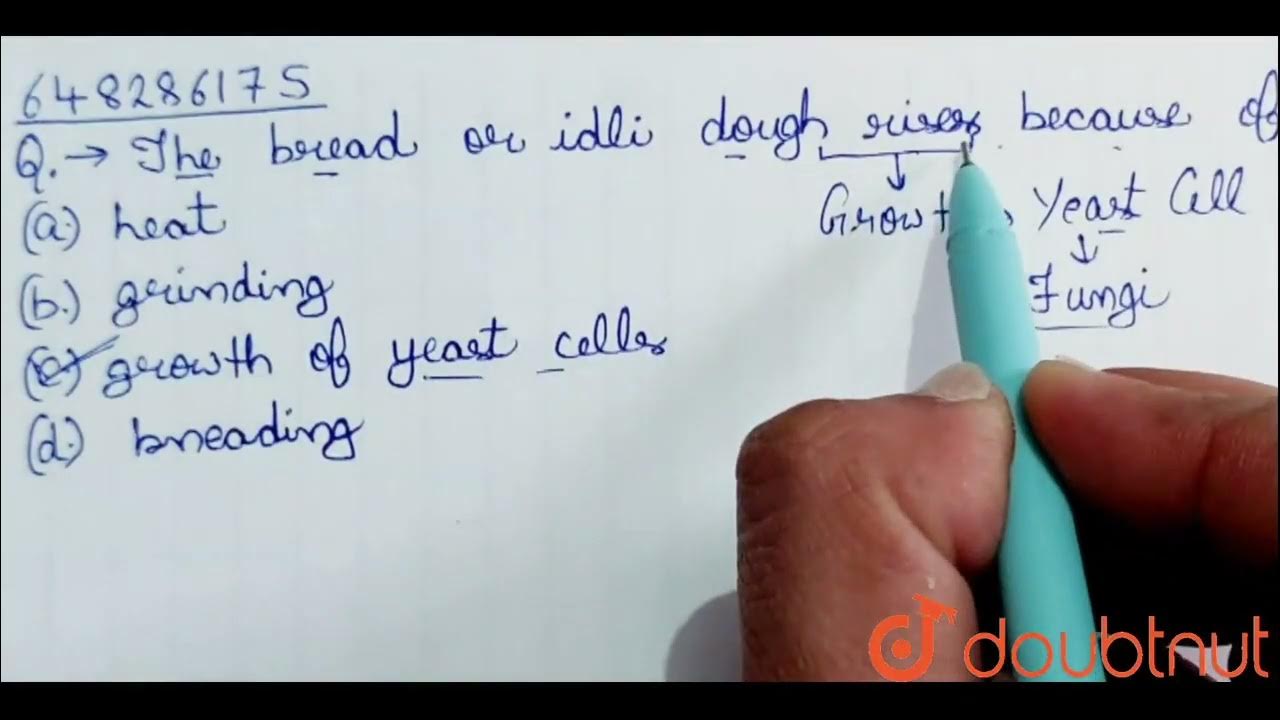 648286175
Q. → The bread or idli dough rises because of
Growt Yeast Cell
Fungi
(a.) heat
(b.) grinding
(c) growth of yeast cells
(d.) kneading
doubtnut